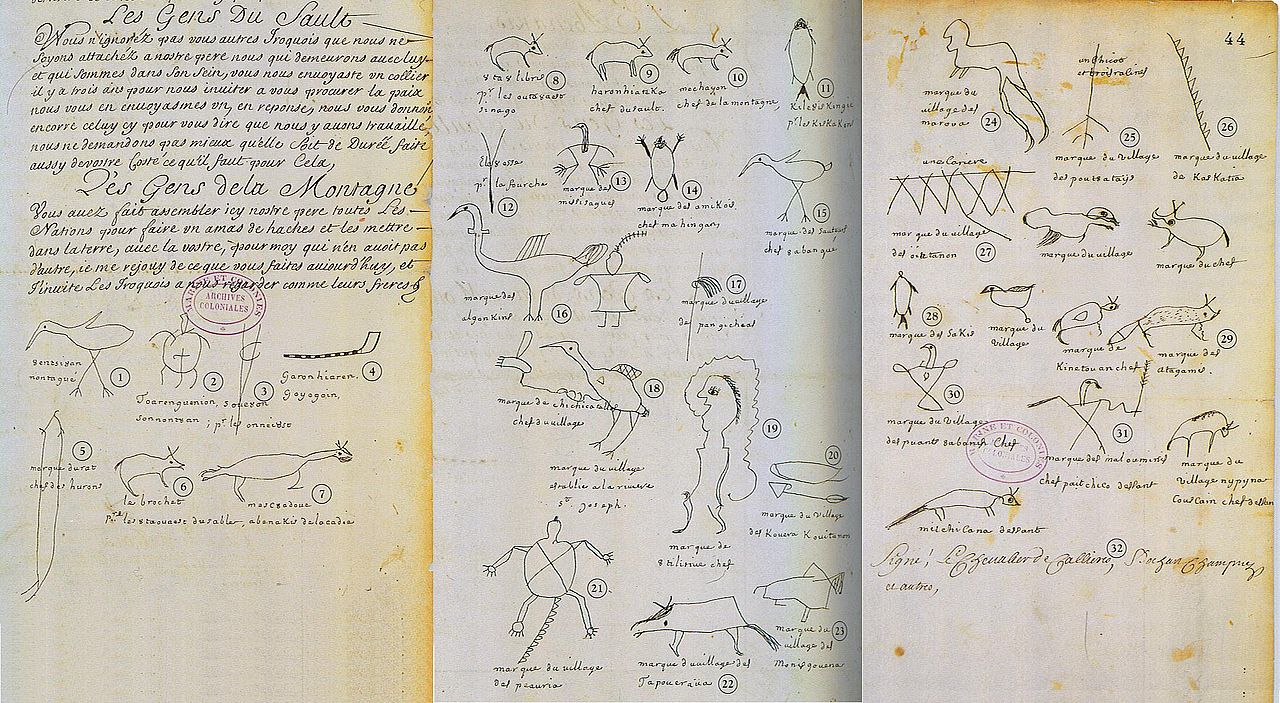 Les Gens Du Sault
Vous n'ignorez pas vous autres Iroquois que nous ne
soyons attachez a nostre pere nous qui demeurons avec luy
et qui sommes dans son sein, vous nous envoyaste un collier
il y a trois ans pour nous inviter a vous procurer la paix
nous vous en envoyasmes vn, en reponse, nous vous donnons
encorre celuy cy pour vous dire que nous y avons travaillé
nous ne demandons pas mieux qu'elle soit de Durée faite
aussy de vostre Costé ce qu'il faut pour Cela,
Des Gens de la Montagne
Vous avez fait assembler icy nostre pere toutes Les
Nations pour faire vn amas de haches et les mettre
dans la terre, avec la vostre, pour moy qui n'en avoit pas
d'autre, ie me rejouy de ce que vous faites aujourd'huy, et
J'invite Les Iroquois a nous regarder comme leurs freres
ARCHIVES
COLONIALES
1
2
3
4
montague
Toarenguenion,
sonnontuan ; pr. les onneiost
Garonhiaren,
Goyogoin,
5
marque du rat
chef des hurons
6
le brochet
7
mescadoue
abenakis de lacadie
8
pr. les outaouast
sinago
9
haronhiateka
chef du sault.
10
mechayon
chef de la montagne
11
Kileouiskingie
pr. les Kiskakons
12
pr. la fourche
13
marque des
missisagues
14
marque des amikois
chef mahingan,
15
marque des sauteurs
chef 8abangué
16
marque des
algonkins
17
marque du village
de pangicheas
18
marque de chichicatalle
chef du village
marque du village
establie a la riviere
st. Joseph.
19
marque de
8tilirine chef
20
marque du village
des Kouera Kouitanon
21
marque du village
des peauria
22
marque du village des
Tapoueraüa
23
marque du
village des
Monisgouena
44
24
marque du
village des
marova
25
un chicot
et trois racines
marque du village
des pouteatais
26
marque du village
de Kaskakia
27
marque du village
des oüetanon
marque du village
marque du chef
28
marque des Sakis
marque du
village
29
marque de
Kinetouan chef
marque des
atagamis
30
marque du village
des puants 8abanis chef
31
marque des maloumines
chef paitchico dessant
marque du
village nypyna
Coussain chef dessant
MARINE ET COLONIES
COLONIALES
32
michilcana dessant
Signé, Le Chevalier de Callieres, Bochart Champigny
et autres,